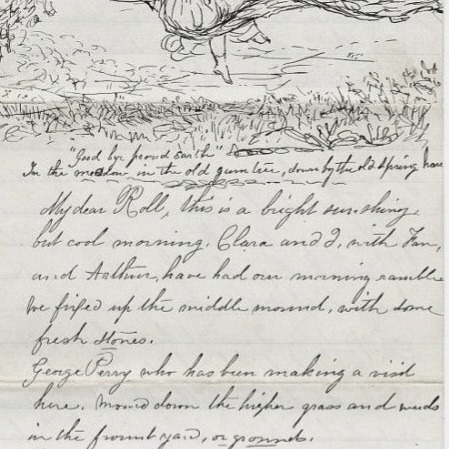 "Good bye proud Earth"
In the meadow in the old gum tree, down by the old spring house
My dear Roll, this is a bright sun-shiny
but cool morning. Clara and I, with Fan,
and Arthur, have had our morning ramble
We fixed up the middle mound, with some
fresh stones.
George Perry who has been making a visit
here. Mowed down the higher grass and weeds
in the front yard, or grounds.